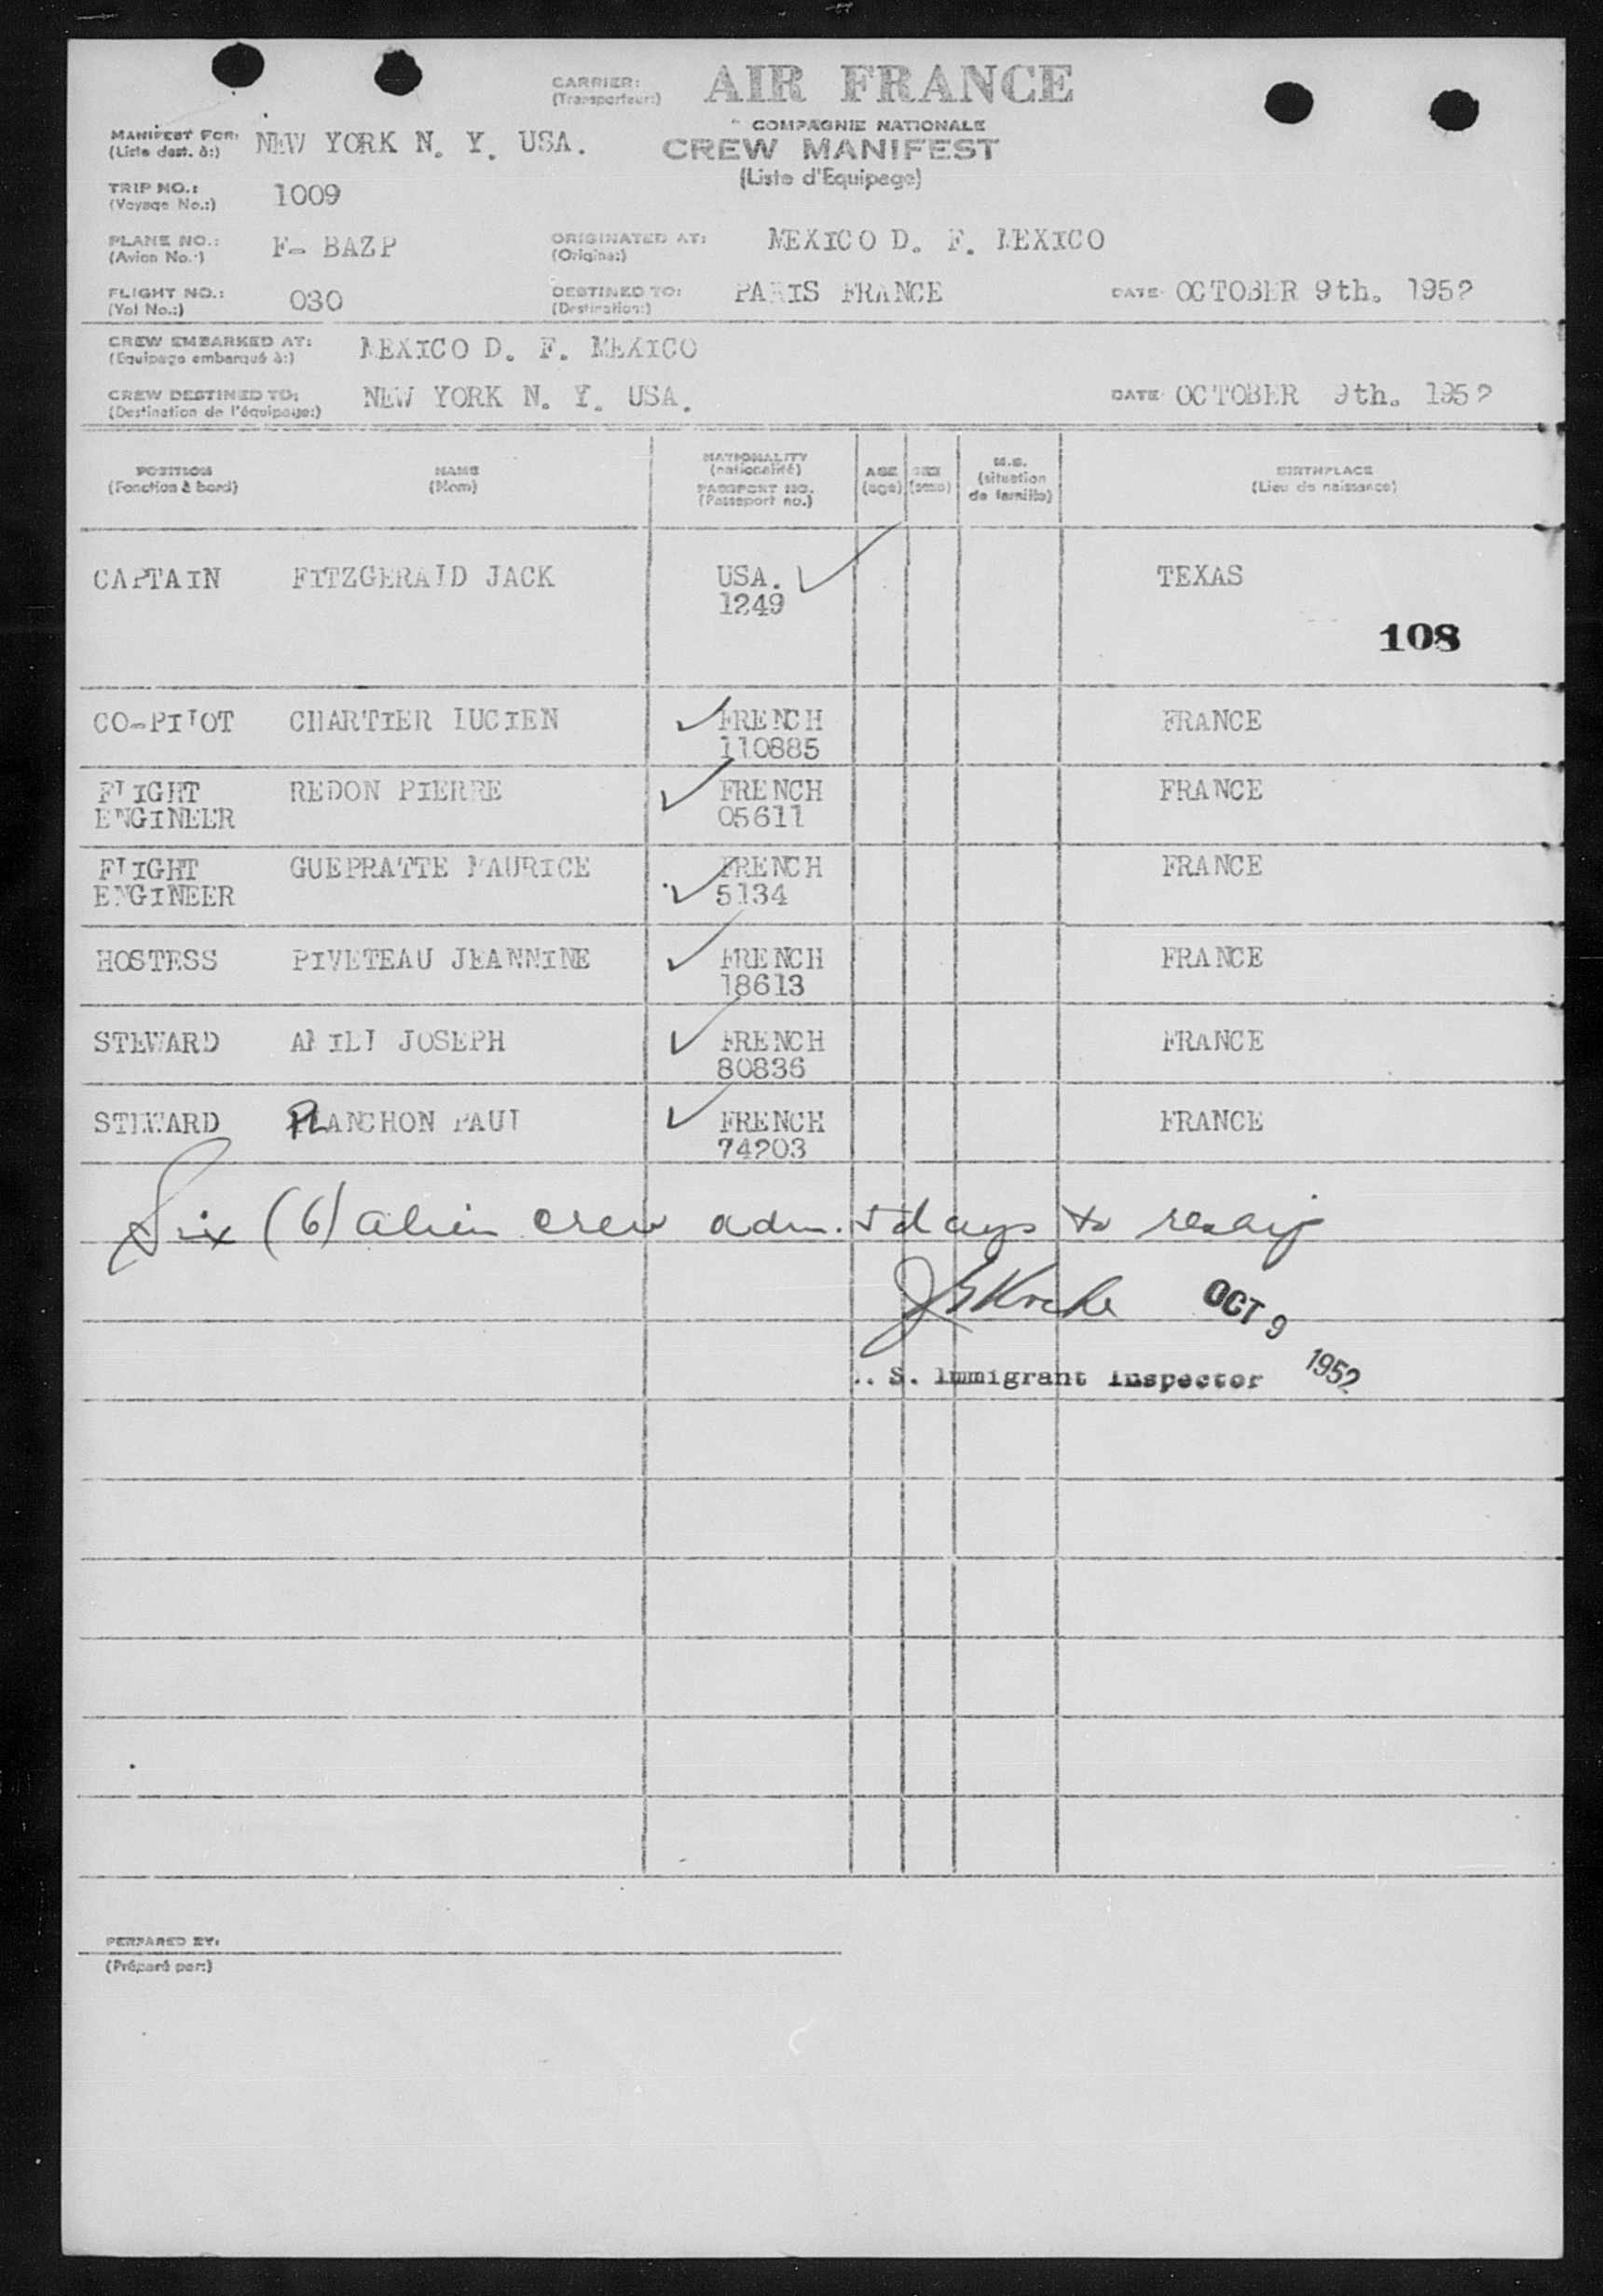 CARRIER: AIR FRANCE
(Transporteur:)
COMPAGNIE NATIONALE
MANIFEST FOR: NEW YORK N. Y. USA. CREW MANIFEST
(Liste dest. à:)
(Liste d'Equipage)
TRIP NO.: 1009
(Voyage No.:)
PLANE NO.: F- BAZP ORIGINATED AT: MEXICO D. F. MEXICO
(Avion No.:) (Origine:)
FLIGHT NO.: 030 DESTINED TO: PARIS FRANCE DATE: OCTOBER 9th. 1952
(Vol No.:) (Destination:)
CREW EMBARKED AT: MEXICO D. F. MEXICO
(Equipage embarqué à:)
CREW DESTINED TO: NEW YORK N. Y. USA. DATE: OCTOBER 9th. 1952
(Destination de l'équipage:)
POSITION NAME NATIONALITY AGE SEX M.S. BIRTHPLACE
(Fonction à bord) (Nom) (nationalité) (age) (sexe) (situation de famille) (Lieu de naissance)
PASSPORT NO.
(Passeport no.)
CAPTAIN FITZGERALD JACK USA. TEXAS
1249
108
CO-PILOT CHARTIER LUCIEN FRENCH FRANCE
110885
FLIGHT REDON PIERRE FRENCH FRANCE
ENGINEER 05611
FLIGHT GUEPRATTE MAURICE FRENCH FRANCE
ENGINEER 5134
HOSTESS PIVETEAU JEANNINE FRENCH FRANCE
18613
STEWARD JOSEPH FRENCH FRANCE
80836
STEWARD PLANCHON PAUL FRENCH FRANCE
74203
Six (6) alien crew adm. 5 days to reship
OCT 9 1952
S. Immigrant Inspector
PERPARED BY:
(Préparé par:)